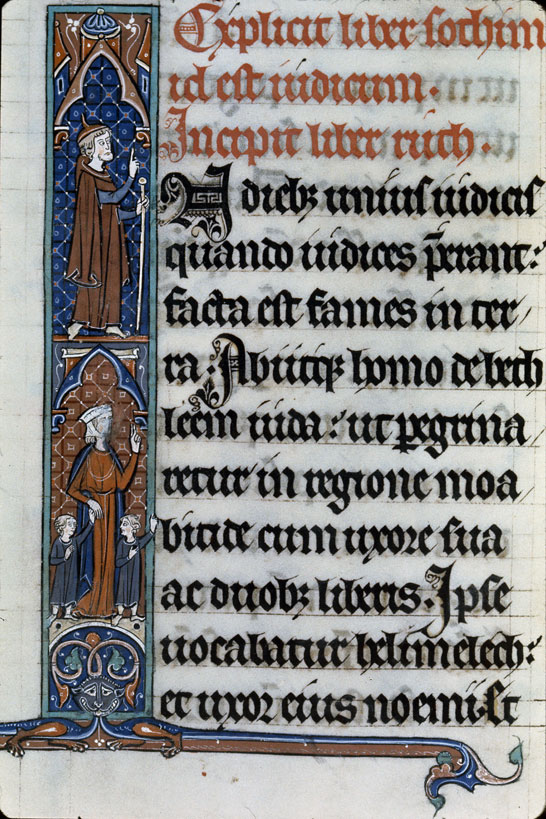 Explicit liber sothim
id est iudicum.
Incipit liber ruth.
N dieb; unius iudicis
quando iudices p̄erant:
facta est fames in ter/
ra. Abiitq; homo de beth
leem iuda: ut pegrina/
retur in regione moa/
bitide cum uxore sua
ac duob; liberis. Ipse
uocabatur helimelech:
et uxor eius noemi. st